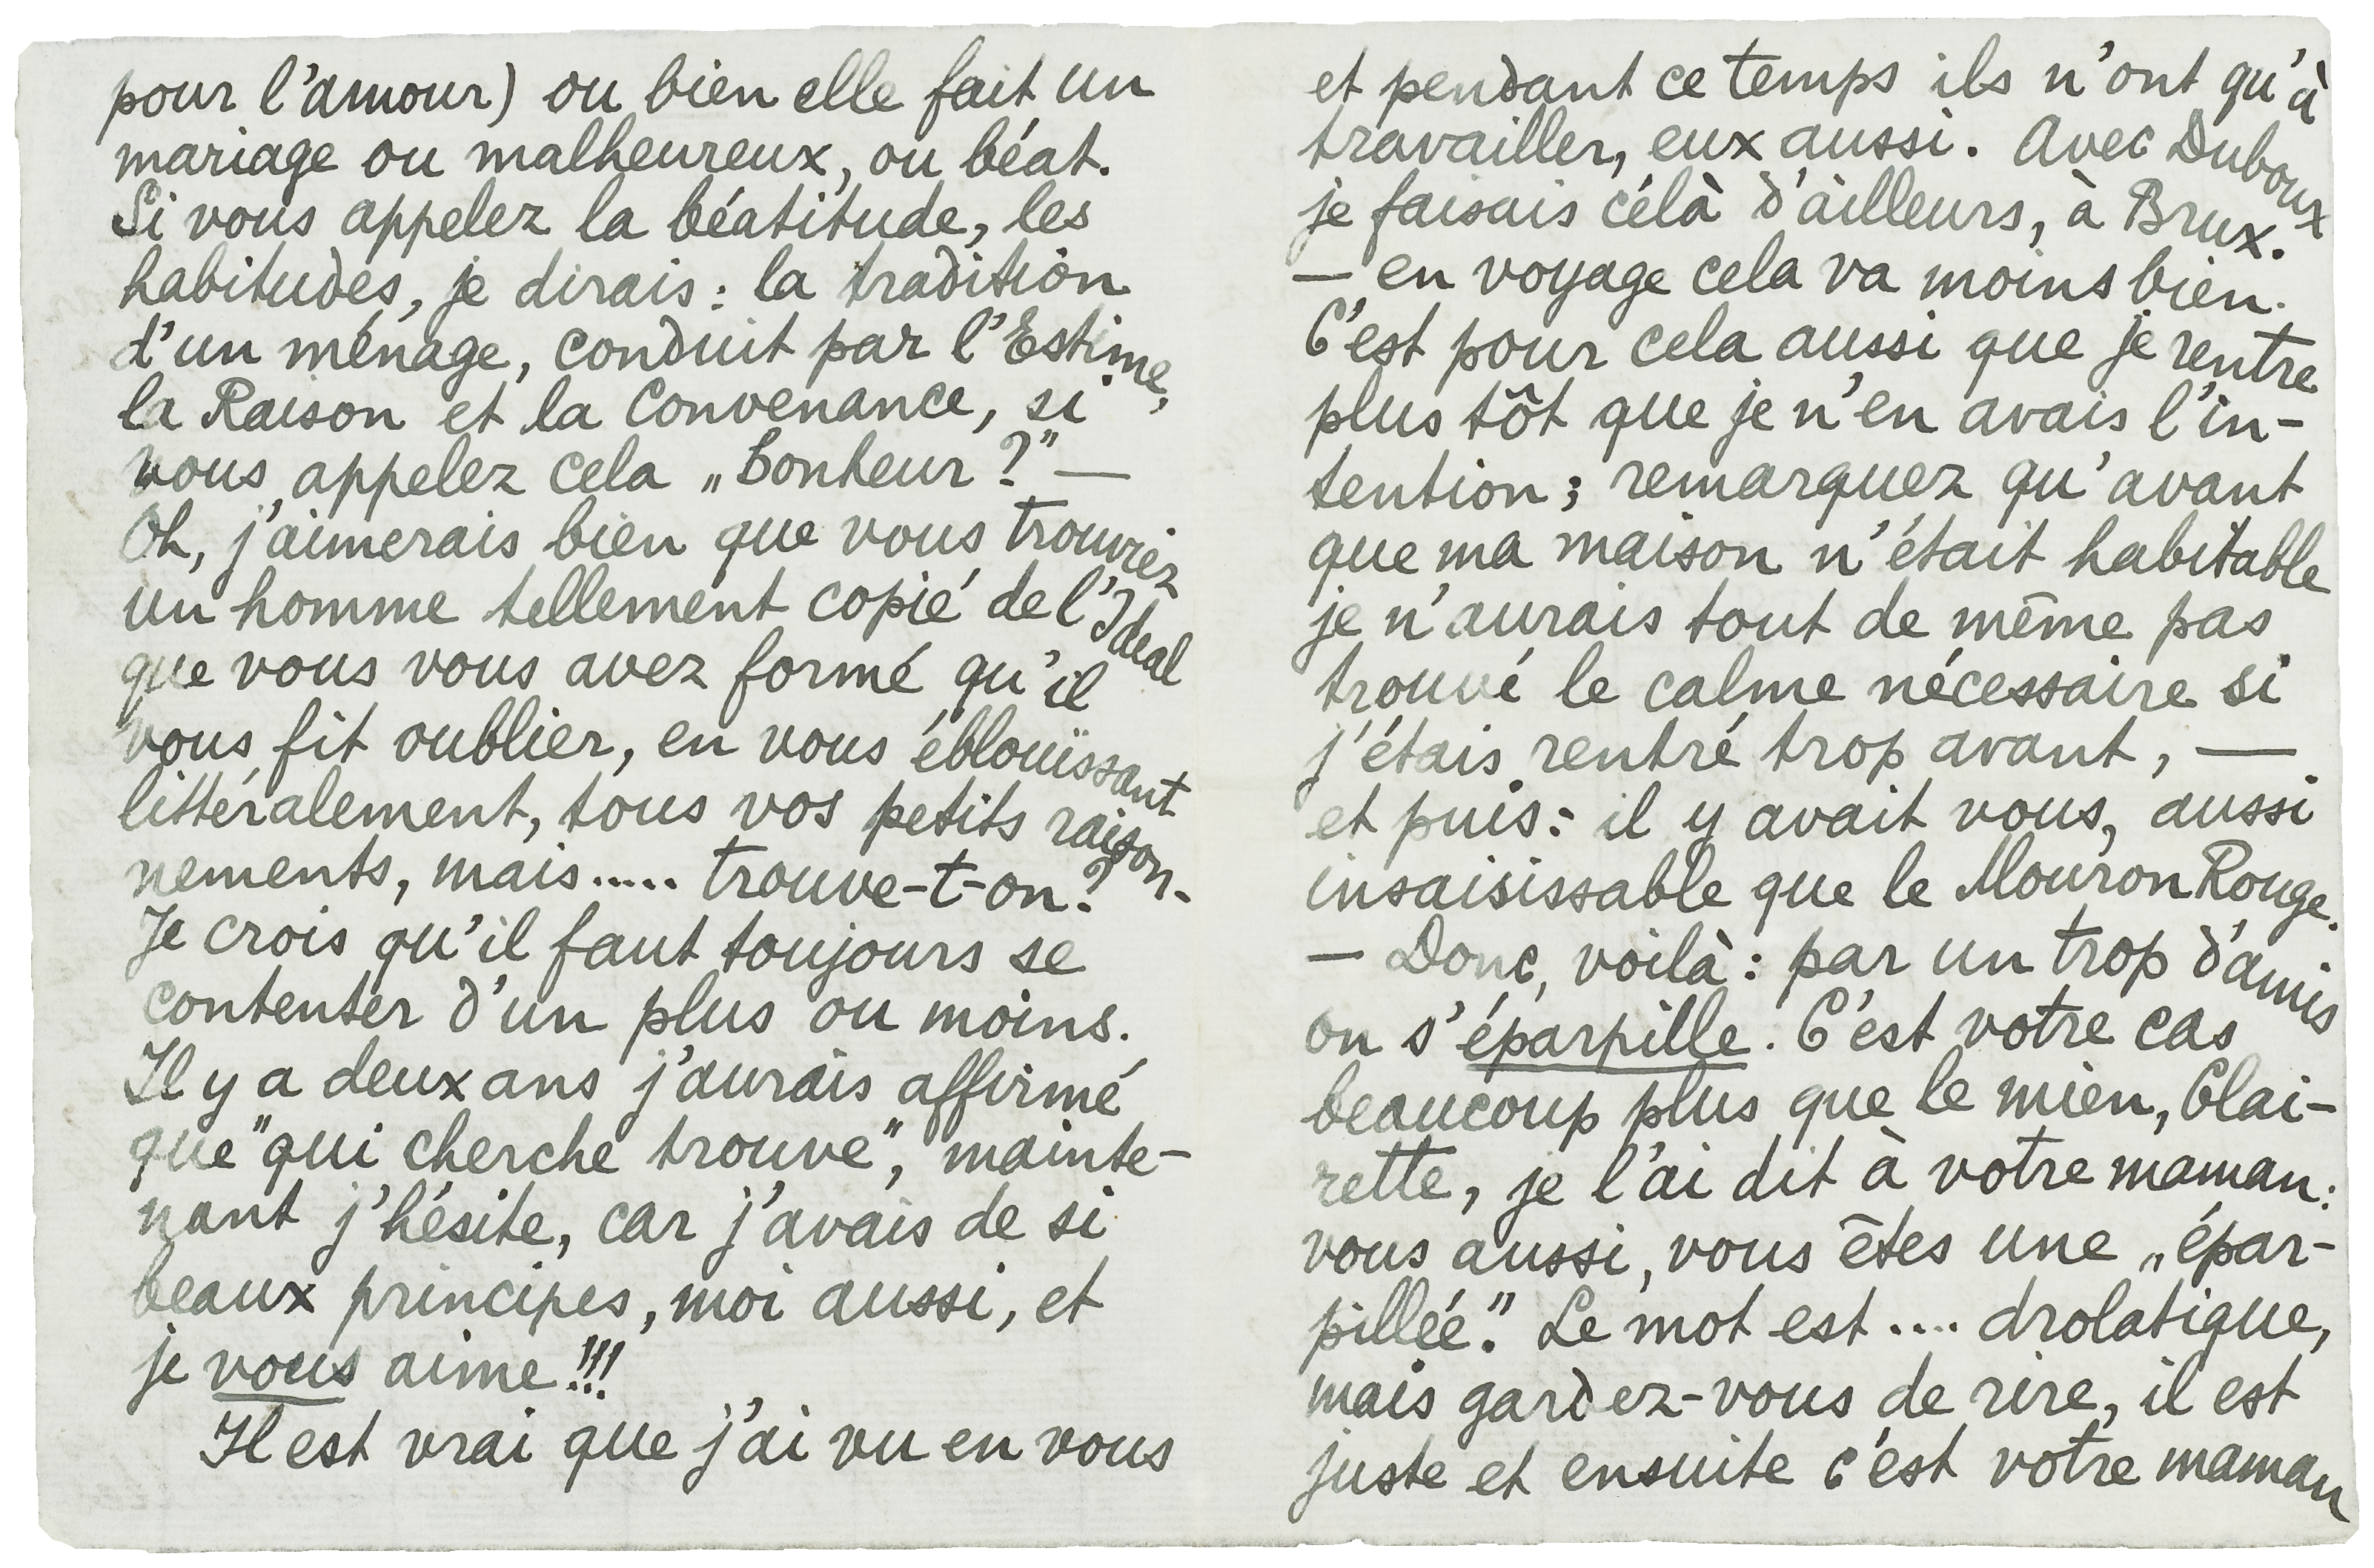 pour l'amour) ou bien elle fait un
mariage ou malheureux, ou béat.
Si vous appelez la béatitude, les
habitudes, je dirais : la tradition
d'un ménage, conduit par l'Estime,
la Raison et la Convenance, si
vous appelez cela „Bonheur ?” —
Oh, j'aimerais bien que vous trouviez
un homme tellement copié de l'Ideal
que vous vous avez formé qu'il
vous fit oublier, en vous éblouïssant
littéralement, tous vos petits raison-
nements, mais..... trouve-t-on ?
Je crois qu'il faut toujours se
contenter d'un plus ou moins.
Il y a deux ans j'aurais affirmé
que "qui cherche trouve", mainte-
nant j'hésite, car j'avais de si
beaux principes, moi aussi, et
je vous aime !!!
Il est vrai que j'ai vu en vous
et pendant ce temps ils n'ont qu'à
travailler, eux aussi. Avec Duboux
je faisais célà d'ailleurs, à Brux.
— en voyage cela va moins bien.
C'est pour cela aussi que je rentre
plus tôt que je n'en avais l'in-
tention ; remarquez qu'avant
que ma maison n'était habitable
je n'aurais tout de même pas
trouvé le calme nécessaire si
j'étais rentré trop avant, —
et puis : il y avait vous, aussi
insaisissable que le Mouron Rouge.
— Donc, voilà : par un trop d'amis
on s'éparpille. C'est votre cas
beaucoup plus que le mien, Clai-
rette, je l'ai dit à votre maman :
vous aussi, vous êtes une „épar-
pillée”. Le mot est .... drolatique,
mais gardez-vous de rire, il est
juste et ensuite c'est votre maman